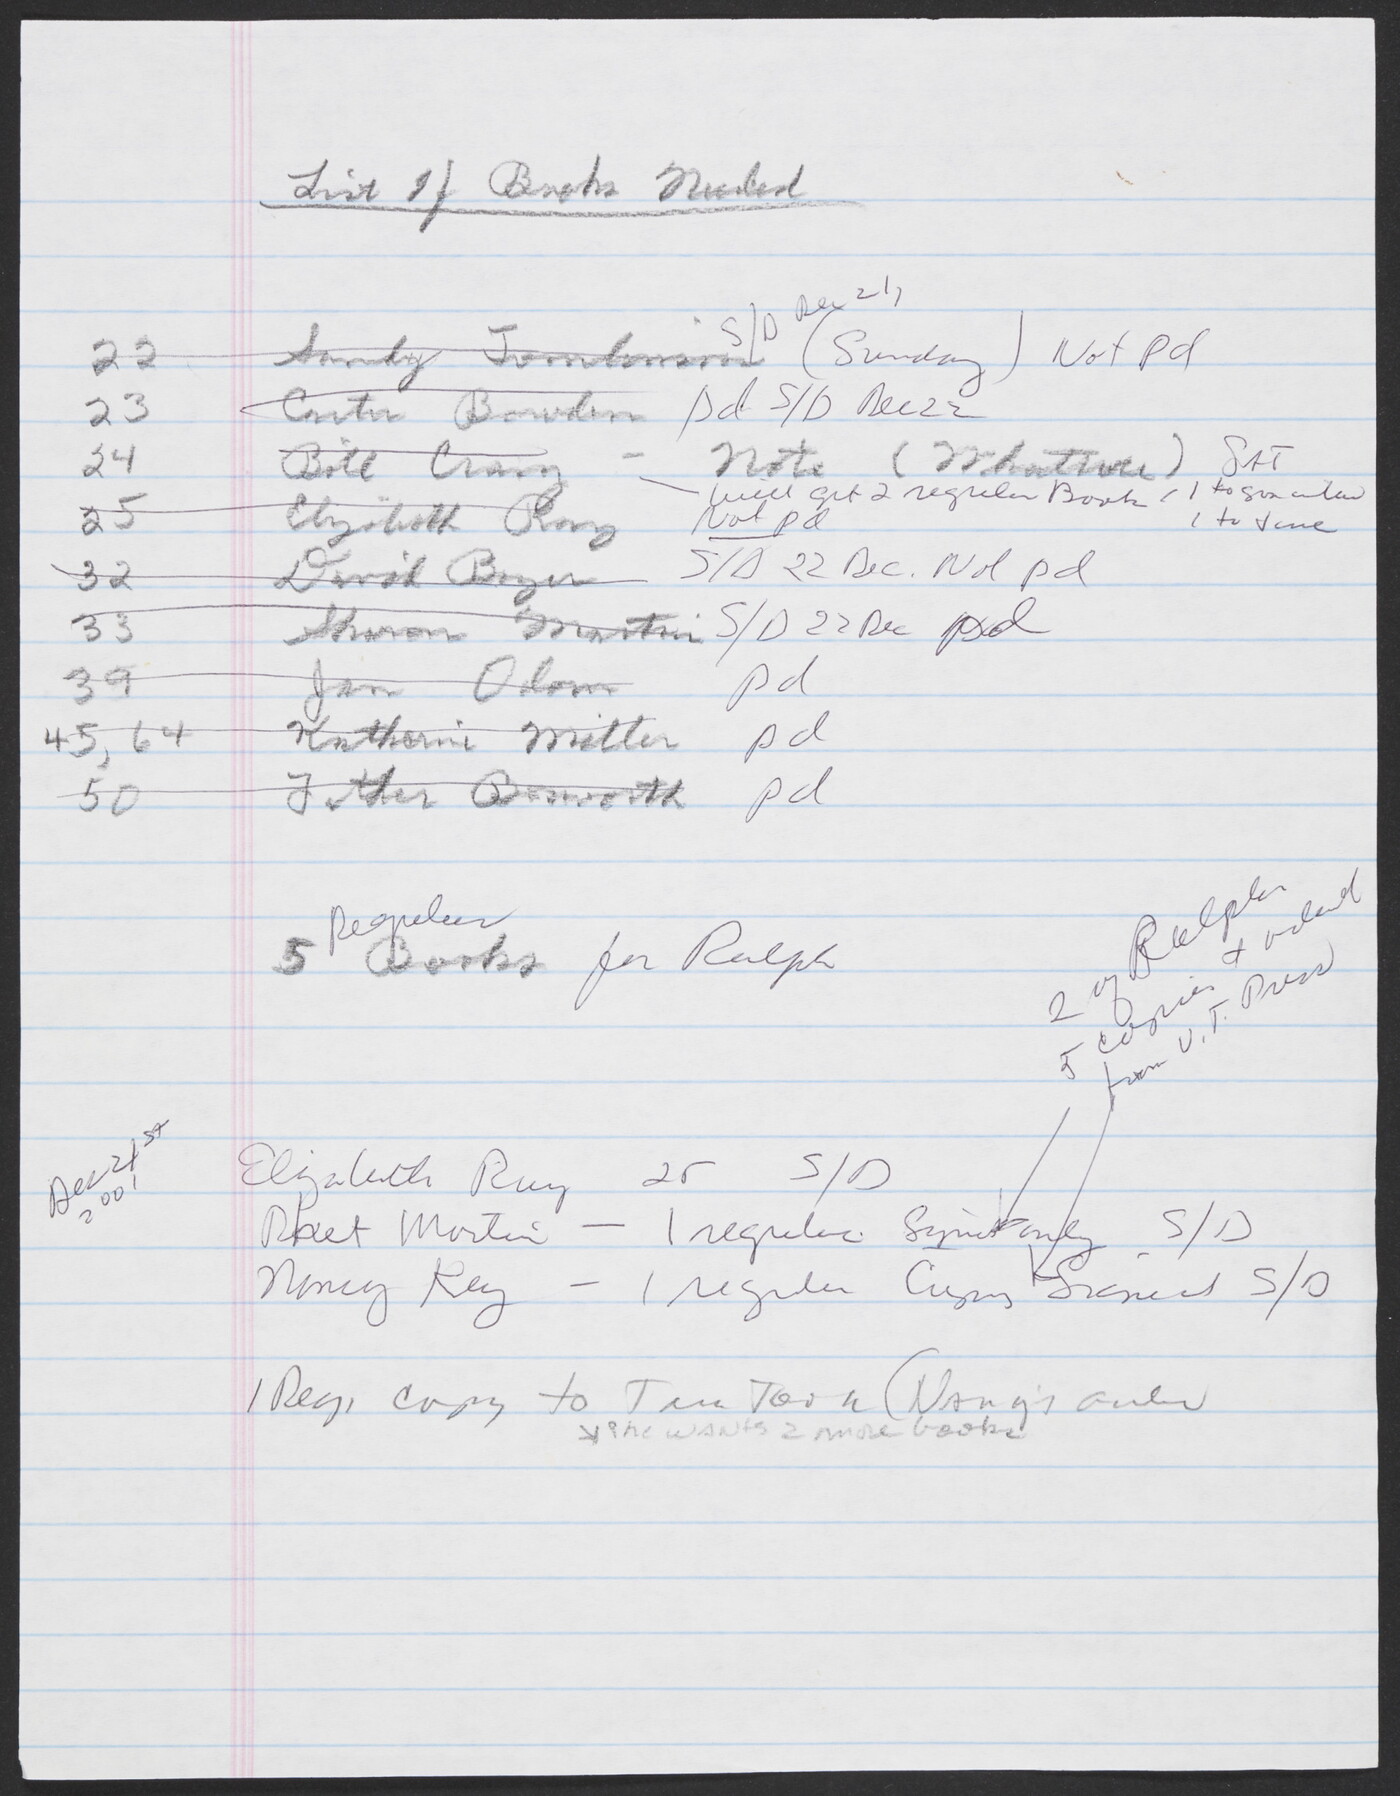 List of Books Needed
22 Sandy Tomlinson S/D Dec 21, (Sunday) Not pd
23 Carter Bowden pd S/D Dec 22
24 Bill Craig - Note (Whatever) SAT
will get 2 regular Books 1 to
25 Elizabeth Ray Not pd 1 to
32 David Boyer S/D 22 Dec. Not pd
33 Sharon Martin S/D 22 Dec pd
39 Jan Odom pd
45, 64 Katherine Miller pd
50 Father Bosworth pd
5 Regular Books for Ralph
2 of Ralphs
5 copies +
from U.T. Press
Dec 21st
2001
Elizabeth Ray 25 S/D
Martin — 1 regular only S/D
Nancy Key — 1 regular Copy Signed S/D
1 Reg. copy to (Nancy's
she WANTS 2 more books